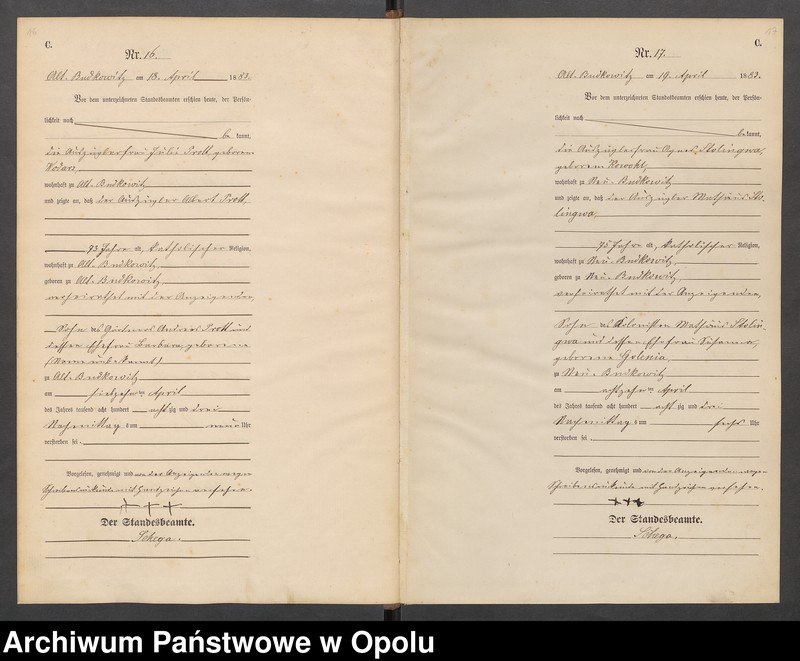 C.
Nr. 16.
Alt. Budkowitz am 18. April 1883.
Vor dem unterzeichneten Standesbeamten erschien heute, der Persön-
lichkeit nach
be kannt,
die Auszüglerfrau Julie Prott, geborene
wohnhaft zu Alt. Budkowitz
und zeigte an, daß der Auszügler Albert Prott,
73 Jahre alt, katholischer Religion,
wohnhaft zu Alt. Budkowitz,
geboren zu Alt. Budkowitz
verheirathet mit der Anzeigenden,
Sohn des Gärtners Andreas Prott und
dessen Ehefrau Barbara, geborene
(Name unbekannt)
zu Alt. Budkowitz
am April
des Jahres tausend acht hundert acht zig und drei
Nachmittag s um neun Uhr
verstorben sei.
Vorgelesen, genehmigt und von der Anzeigenden wegen
Schreibensunkunde mit Handzeichen versehen.
+ + +
Der Standesbeamte.
C.
Nr. 17.
Alt. Budkowitz am 19. April 1883.
Vor dem unterzeichneten Standesbeamten erschien heute, der Persön-
lichkeit nach
be kannt,
die Auszüglerfrau Agnes Stolingwa,
geborene Kowohl,
wohnhaft zu Neu. Budkowitz
und zeigte an, daß der Auszügler Mathäus Sto-
lingwa,
75 Jahre alt, katholischer Religion,
wohnhaft zu Neu. Budkowitz,
geboren zu Neu. Budkowitz
verheirathet mit der Anzeigenden,
Sohn des Kolonisten Mathäus Stolin-
gwa und dessen Ehefrau Susanna,
geborene
zu Neu. Budkowitz
am achtzehnten April
des Jahres tausend acht hundert acht zig und drei
Nachmittag s um sechs Uhr
verstorben sei.
Vorgelesen, genehmigt und von der Anzeigenden wegen
Schreibensunkunde mit Handzeichen versehen.
+++
Der Standesbeamte.
Archiwum Państwowe w Opolu